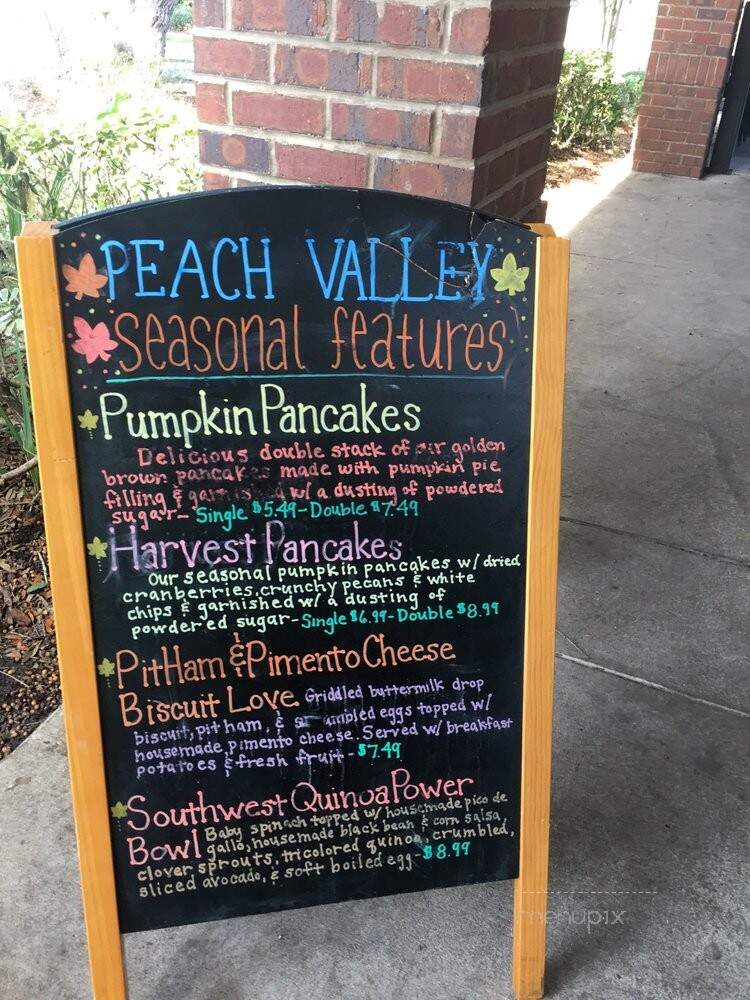 PEACH VALLEY
seasonal features
Pumpkin Pancakes
Delicious double stack of our golden
brown pancakes made with pumpkin pie
filling & garnished w/ a dusting of powdered
sugar- Single $5.49-Double $7.49
Harvest Pancakes
Our seasonal pumpkin pancakes w/ dried
cranberries, crunchy pecans & white
chips & garnished w/ a dusting of
powdered sugar- Single $6.99-Double $8.99
Pit Ham & Pimento Cheese
Biscuit Love Griddled buttermilk drop
biscuit, pit ham, & scrambled eggs topped w/
housemade pimento cheese. Served w/ breakfast
potatoes & fresh fruit - $7.49
Southwest Quinoa Power
Bowl Baby spinach topped w/ housemade pico de
gallo, housemade black bean & corn salsa,
clover sprouts, tricolored quinoa, crumbled,
sliced avocado, & soft boiled egg- $8.99
menupix